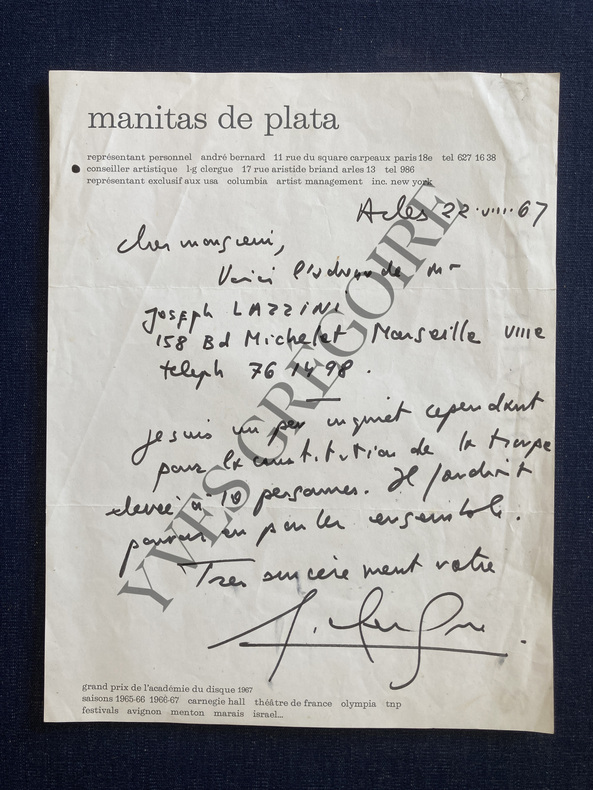 manitas de plata
représentant personnel andré bernard 11 rue du square carpeaux paris 18e tel 627 16 38
conseiller artistique l-g clergue 17 rue aristide briand arles 13 tel 986
représentant exclusif aux usa columbia artist management inc. new york
Arles 22.VIII.67
Cher monsieur,
Voici l'adresse de Mr
Joseph LAZZINI
158 Bd Michelet Marseille VIIIe
teleph 76 14 98.
Je suis un peu inquiet cependant
pour la constitution de la troupe
elevée à 10 personnes. Il faudrait
pouvoir en parler ensemble.
Très sincèrement votre
grand prix de l'académie du disque 1967
saisons 1965-66 1966-67 carnegie hall théâtre de france olympia tnp
festivals avignon menton marais israel...
YVES GREGOIRE